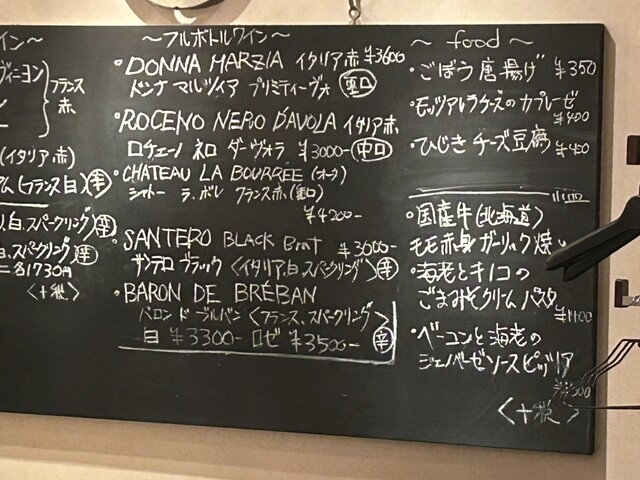 イン〜
ヴィニヨン
フランス
赤
(イタリア赤)
ム(フランス白)辛
リ、白、スパークリング)辛
白、スパークリング)辛
各1730円
〈+税〉
〜フルボトルワイン〜
・DONNA MARZIA イタリア赤 ¥3600
ドンナ マルツィア プリミティーヴォ 重口
・ROCENO NERO D'AVOLA イタリア赤
ロチェーノ ネロ ダーヴォラ ¥3000- 中口
・CHATEAU LA BOURREE
シャトー ラ・ボレ フランス赤
¥4200-
・SANTERO BLACK Brut ¥3000-
サンテロ ブラック 〈イタリア、白、スパークリング〉辛
・BARON DE BRÉBAN
バロン ド ブルバン 〈フランス、スパークリング〉
白 ¥3300- ロゼ ¥3500- 辛
〜 food 〜
・ごぼう唐揚げ ¥350
・モッツァレラチーズのカプレーゼ
¥400
・ひじきチーズ豆腐 ¥400
・国産牛(北海道)
モモ赤身ガーリック焼
・海老とキノコの
ごまみそクリームパスタ
・ベーコンと海老の
ジェノバーゼソースピッツァ
〈+税〉